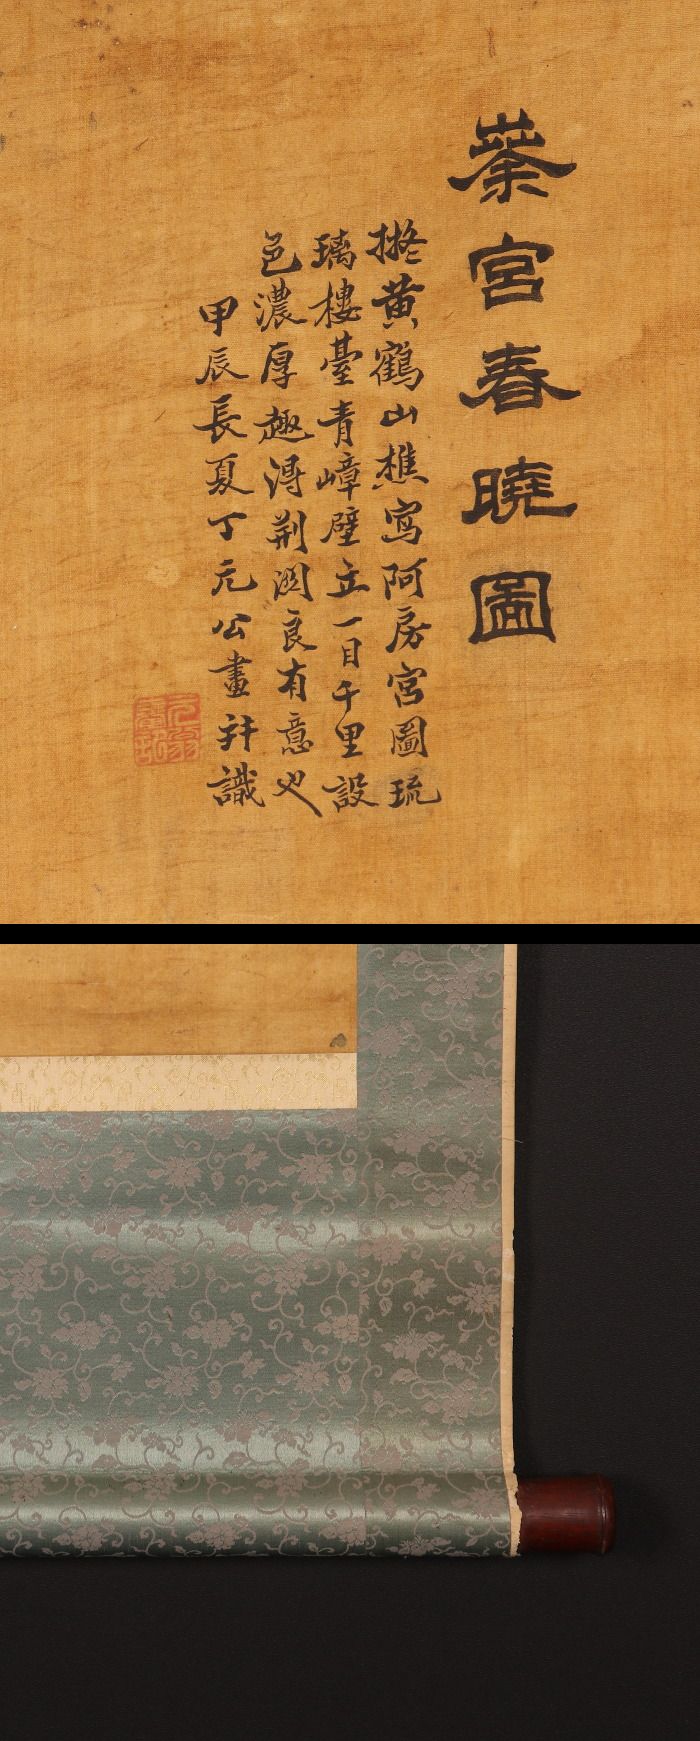 宮春曉圖
擬黃鶴山樵寫阿房宮圖琉
璃樓臺青嶂壁立一目千里設
色濃厚趣得荆関良有意也
甲辰長夏丁元公畫并識